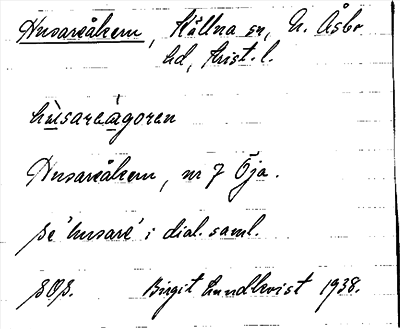 Husaråkern, Källna sn, N. Åsbo
hd, Krist. l.
hùsareàgoren
Husaråkern, nr 7 Öja.
Se 'husare' i dial. saml.
SOS. Birgit Lundkvist 1938.